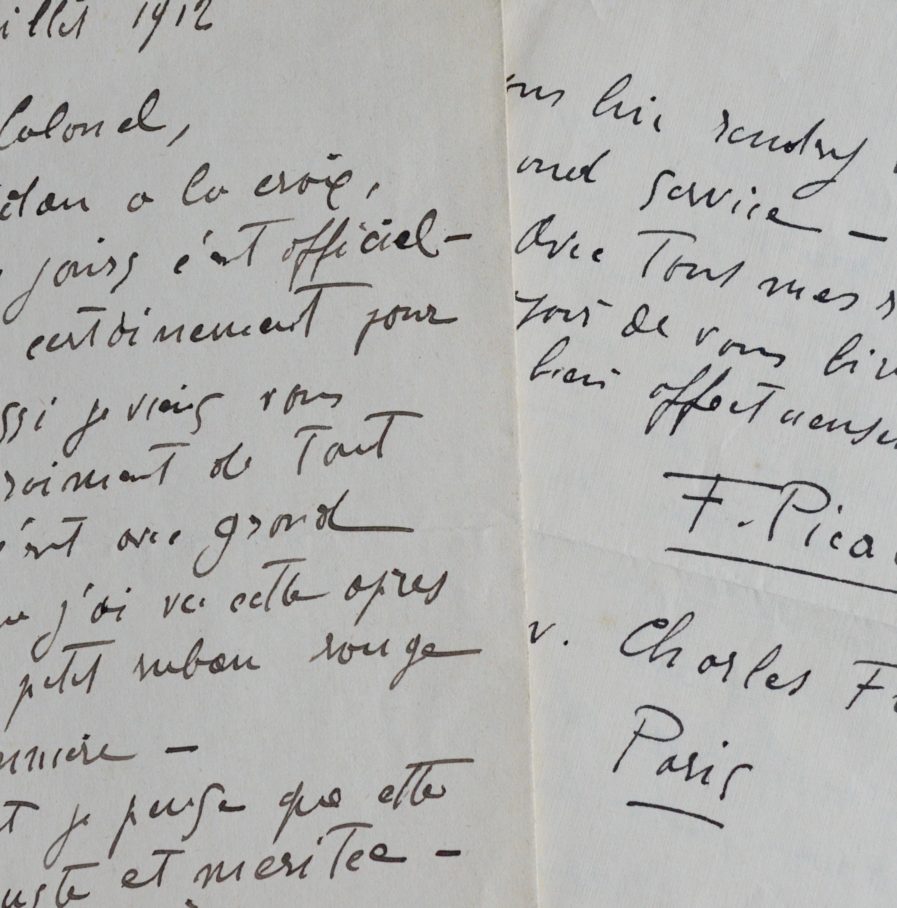 illet 1912
Colonel,
édan a la croix,
jours c'est officiel –
certainement pour
ssi je viens vous
de Tout
c'est avec grand
j'ai vu cette apres
petit ruban rouge
–
t je pense que cette
uste et meritée –
ous lui rendrez
and service –
Avec Tout mes r
de vous
bien affectueuse
F. Pica
v. Charles F
Paris